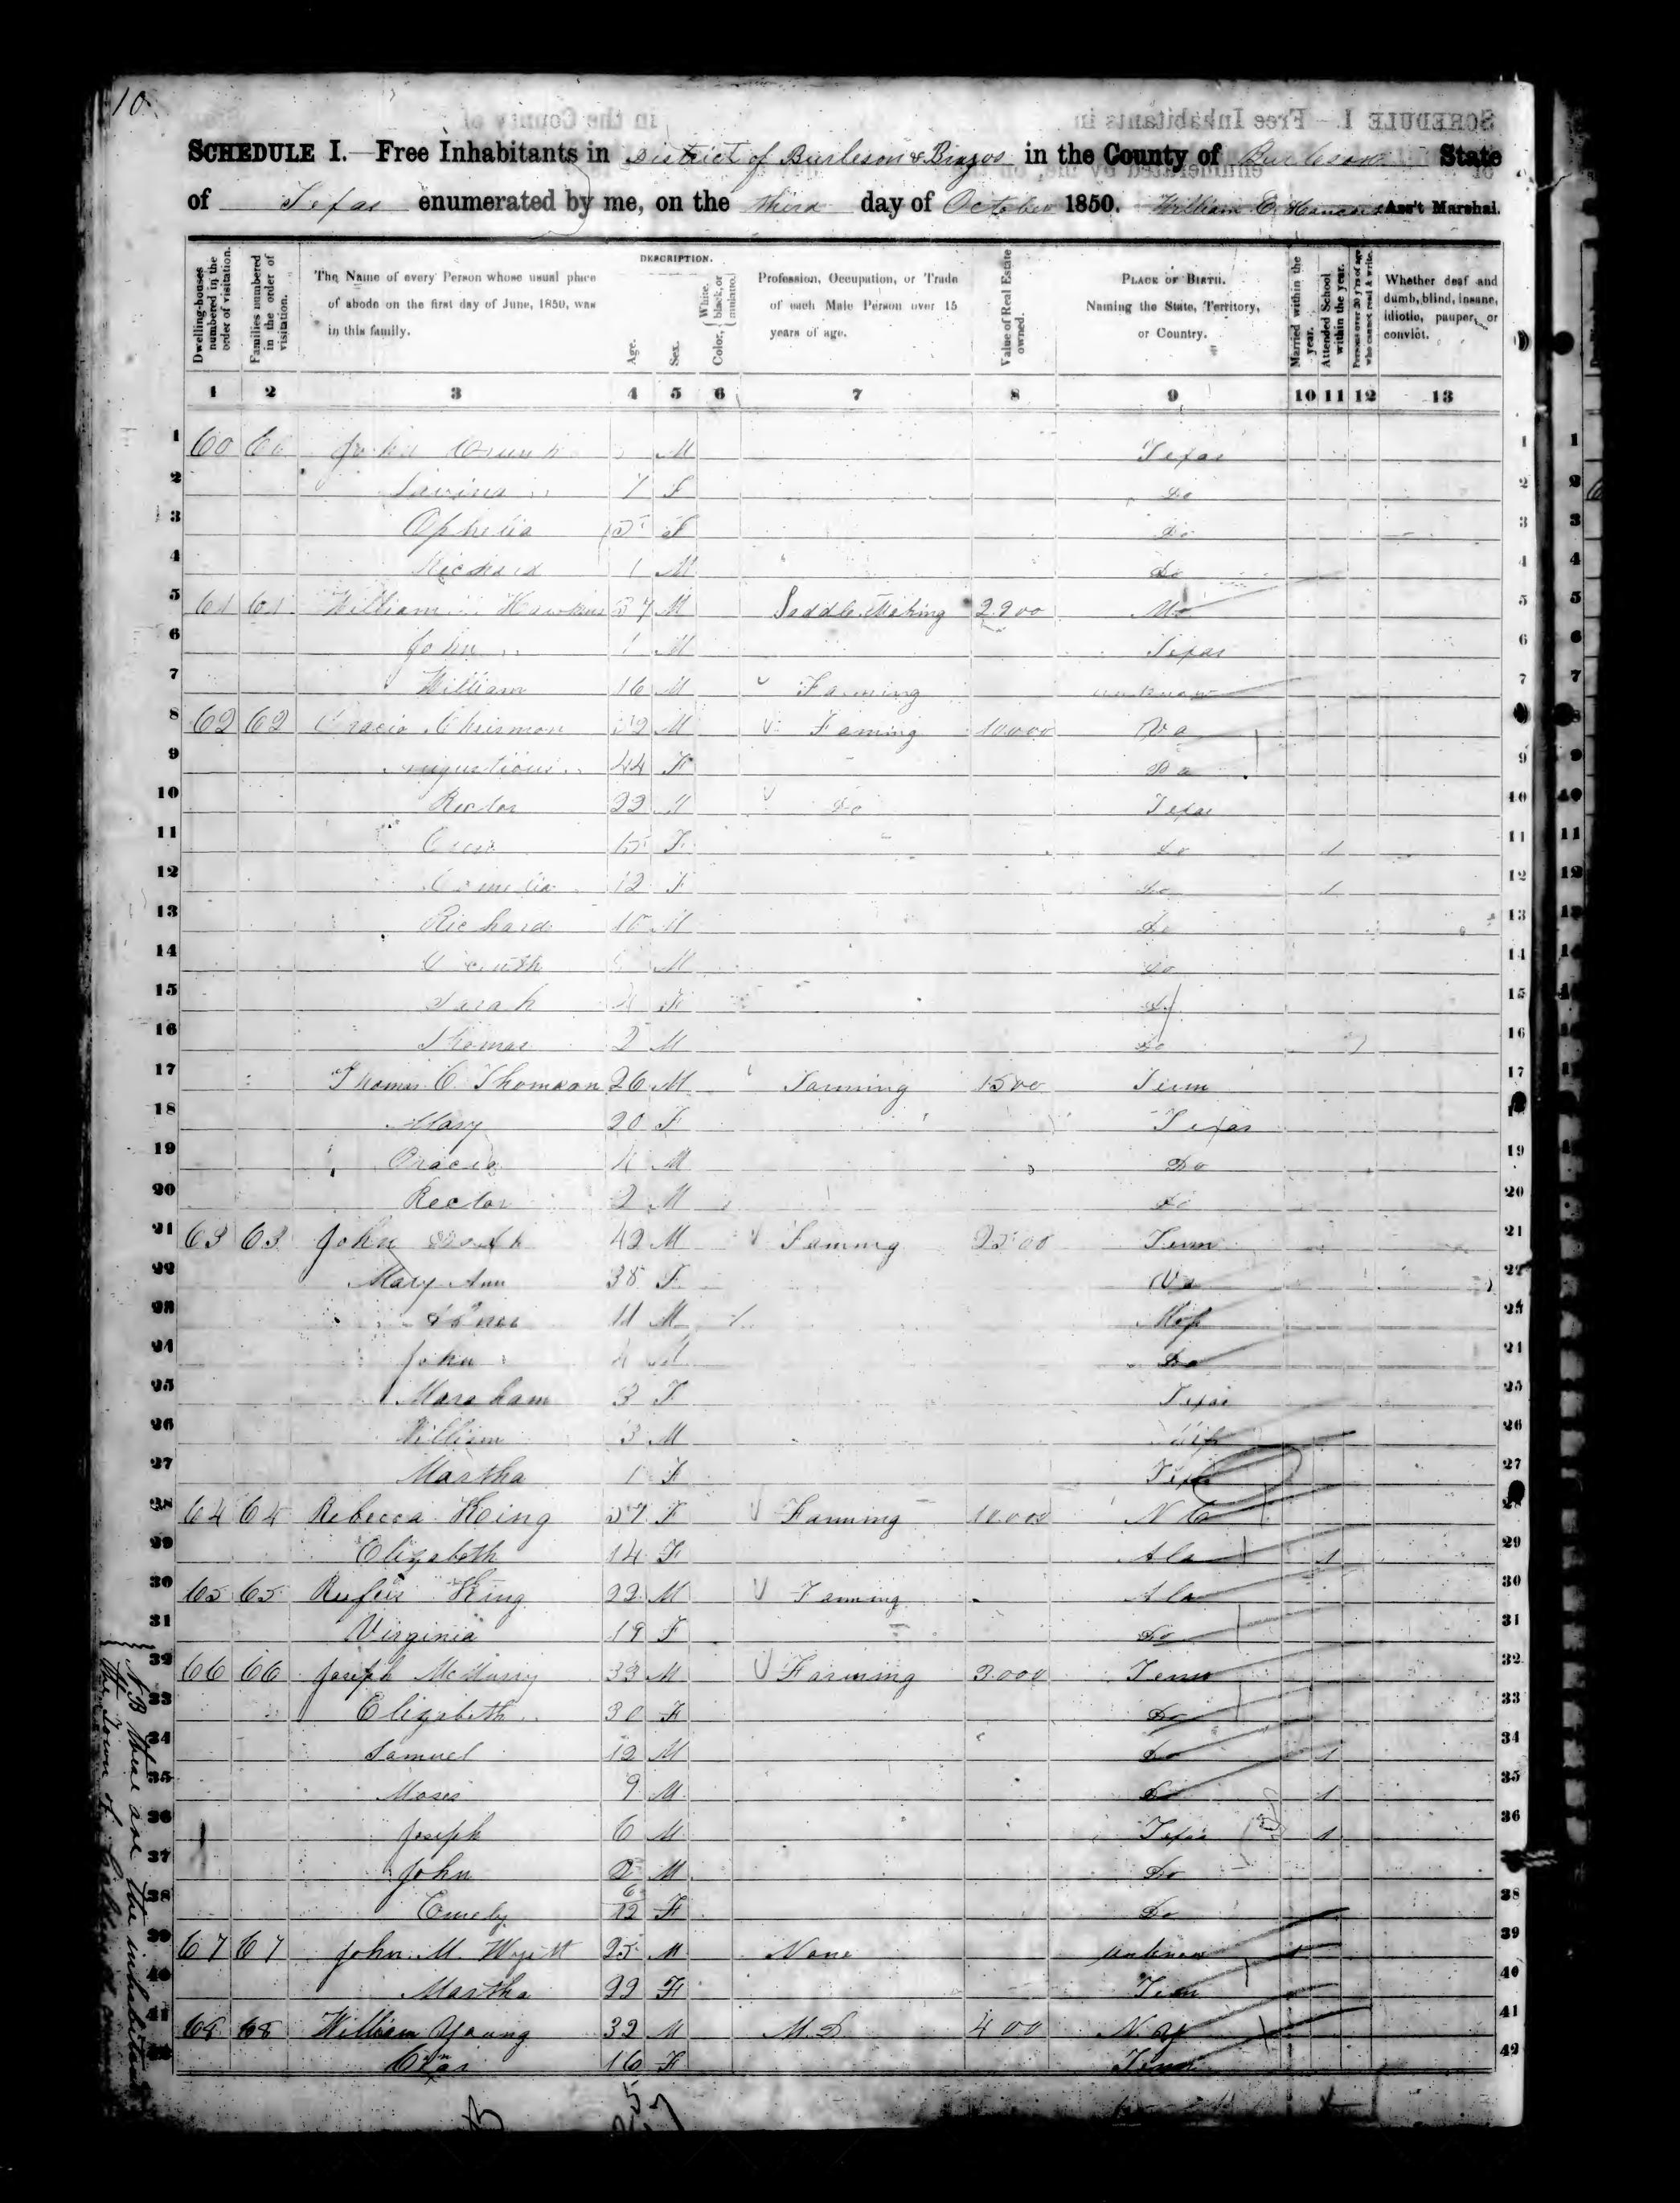 10
SCHEDULE I.—Free Inhabitants in District of Burleson & Brazos in the County of Burleson State
of Texas enumerated by me, on the third day of October 1850. William Ass't Marshal.
Dwelling-houses numbered in the order of visitation.
Families numbered in the order of visitation.
The Name of every Person whose usual place of abode on the first day of June, 1850, was in this family.
DESCRIPTION.
Age.
Sex.
Color, White, black, or mulatto.
Profession, Occupation, or Trade of each Male Person over 15 years of age.
Value of Real Estate owned.
PLACE OF BIRTH. Naming the State, Territory, or Country.
Married within the year.
Attended School within the year.
Persons over 20 y'rs of age who cannot read & write.
Whether deaf and dumb, blind, insane, idiotic, pauper, or convict.
1 2 3 4 5 6 7 8 9 10 11 12 13
1 60 60 John M Texas 1
2 Lavina 7 F Do 2
3 Ophelia 5 F Do 3
4 Richard 1 M Do 4
5 61 61 William Hawkins 37 M Saddle Making 2200 Mo 5
6 John 1 M Texas 6
7 William 16 M Farming unknown 7
8 62 62 Chrisman 52 M Faming 10000 Va 8
9 44 F 9
10 Rector 22 M Do Texas 10
11 15 F Do 1 11
12 12 F Do 1 12
13 Richard 10 M Do 13
14 M Do 14
15 Sarah 4 F Do 15
16 Thomas 2 M Do 16
17 Thomas C. Thomson 26 M Farming 1500 Tenn 17
18 Mary 20 F Texas 18
19 Oracio 4 M Do 19
20 Rector 2 M Do 20
21 63 63 John 42 M Faming 2500 Tenn 21
22 Mary Ann 38 F Va 22
23 11 M 23
24 John 4 M Do 24
25 Marsham 3 F Texas 25
26 William 3 M 26
27 Martha 1 F Texas 27
28 64 64 Rebecca King 57 F Farming 10.000 N C 28
29 Elizabeth 14 F Ala 1 29
30 65 65 Rufus King 22 M Faming Ala 30
31 Virginia 19 F Do 31
32 66 66 Joseph McMurry 33 M Farming 3.000 Tenn 32
33 Elizabeth 30 F Do 33
34 Samuel 12 M Do 1 34
35 Moses 9 M Do 1 35
36 Joseph 6 M Texas 1 36
37 John 2 M Do 37
38 Emely 6/12 F Do 38
39 67 67 John M. Wyatt 25 M None unknow 39
40 Martha 22 F Tenn 40
41 68 68 William Young 32 M M.D. 400 N.Y. 41
42 16 F Tenn 42
N.B these are the inhabitants
the Town of